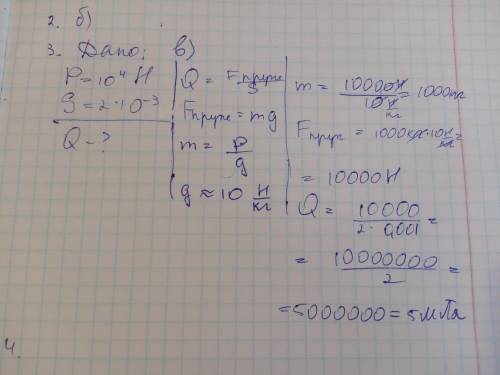 2. б)
3. Дано: в)
P = 10⁴ Н
S = 2·10⁻³
Q - ?
Q = Fпруж/S
Fпруж = mg
m = P/g
g ≈ 10 Н/кг
m = 10000Н/10 Н/кг = 1000кг
Fпруж = 1000кг·10 Н/кг =
= 10000Н
Q = 10000/2·0,001 =
= 10000000/2 =
= 5000000 = 5мПа
4.